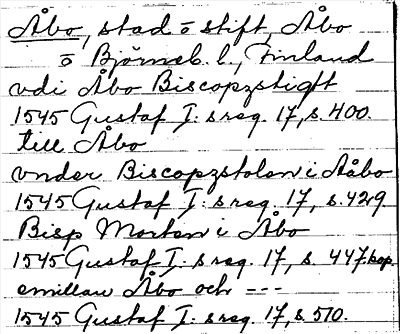 Åbo, stad o stift, Åbo
o Björneb. l., Finland
vdi Åbo Biscopzstigtt
1545 Gustaf I: s reg. 17, s. 400.
till Åbo
vnder Biscopzstolen i Aåbo
1545 Gustaf I: s reg. 17, s. 429
Bisp Morten i Åbo
1545 Gustaf I: s reg. 17, s. 447. kop.
emillan Åbo och ---
1545 Gustaf I: s reg. 17, s. 510.